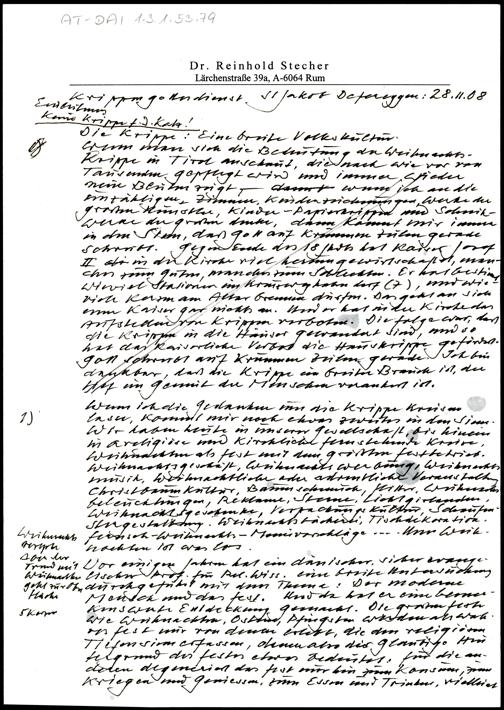 AT-DAI 1.3.1.53.79
Dr. Reinhold Stecher
Lärchenstraße 39a, A-6064 Rum
Krippengottesdienst St Jakob Defereggen: 28.11.08
Einleitung
Keine Krippe
Die Krippe: Eine breite Volkskultur.
Wenn man sich die Bedeutung der Weihnachts-
Krippe in Tirol anschaut, die nach wie vor von
Tausenden gepflegt wird und immer wieder
wenn ich an die
unzähligen Kinderzeichnungen, Werke der
großen Künstler, Kinder-Papierkrippen und Schnitz-
werke der großen denke, dann kommt mir immer
in den Sinn, daß Gott auf krummen Zeilen gerade
schreibt. Gegen Ende des 18. Jhdts hat Kaiser Josef
II in die Kirche viel hineingewirtschaftet, man-
ches zum Guten, manches zum Schlechten. Er hat bestimmt
wieviel Stationen ein Kreuzweg haben darf (7), und wie-
viele Kerzen am Altar brennen dürfen. Das geht an sich
einen Kaiser gar nichts an. Und er hat in der Kirche das
Aufstellen von Krippen verboten. Die Folge war, daß
die Krippen in die Häuser gewandert sind, und so
hat das kaiserliche Verbot die Hauskrippe gefördert.
Gott schreibt auf krummen Zeilen gerade. Ich bin
dankbar, daß die Krippe ein breiter Brauch ist, der
tief im Gemüt der Menschen verankert ist.
1)
Wenn ich die Gedanken um die Krippe kreisen
lasse, kommt mir noch etwas zweites in den Sinn.
Wir haben heute in unserer Gesellschaft, bis hinein
in religiöse und kirchlich fernstehende Kreise,
Weihnachten als Fest mit dem größten Festbetrieb.
Weihnachtsgeschäft, Weihnachtswerbung, Weihnachts-
musik, weihnachtliche oder adventliche Veranstaltungen
Christbaumkultur, Baumschmuck, Weihnachts-
beleuchtungen, Reklame, Sterne, Lichtgirlanden
Weihnachtsgeschenke, Verpackungskultur, Schaufen-
stergestaltung, Weihnachtsbäckerei, Tischdekoration.
Fernseh-Weihnachts-Menüvorschläge .... Um Weih-
nachten ist was los.
Weihnachts
Vor einigen Jahren hat ein dänischer,
Prof. in Rel. Wiss. eine breite Untersuchung
durchgeführt mit dem Thema: Der moderne
Mensch und das Fest. Und da hat er eine bemer-
kenswerte Entdeckung gemacht. Die großen Feste
wie Weihnachten, Ostern, Pfingsten werden als wah-
res Fest nur von denen erlebt, die den religiösen
Tiefensinn erfassen, denen also der gläubige Hin-
tergrund des Festes etwas bedeutet. Für die an-
deren degeneriert das Fest nur hin zum Konsum, zum
Kriegen und Geniessen, zum Essen und Trinken, vielleicht